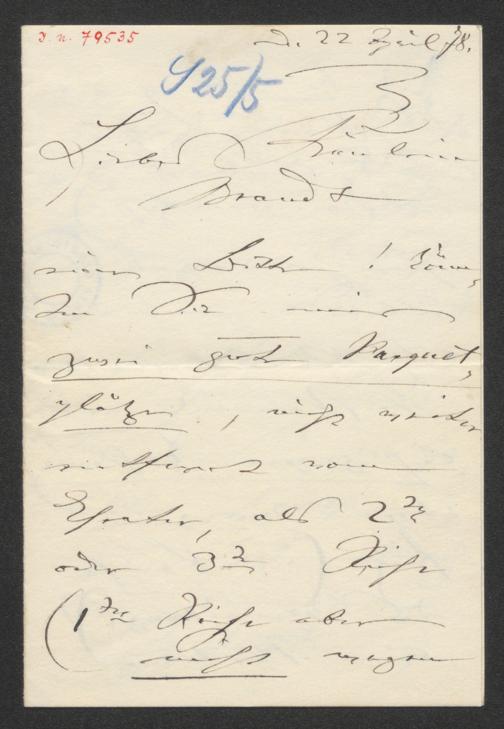 I. N. 79535
d. 22 April 78.
S 25/5
Liebes Fräulein
Brandt
eine Bitte! Könn-
ten Sie mir
zwei gute Parquet-
plätze, nicht weiter
entfernt vom
Theater, als 2te
oder 3te Reihe
(1te Reihe aber
nicht wegen